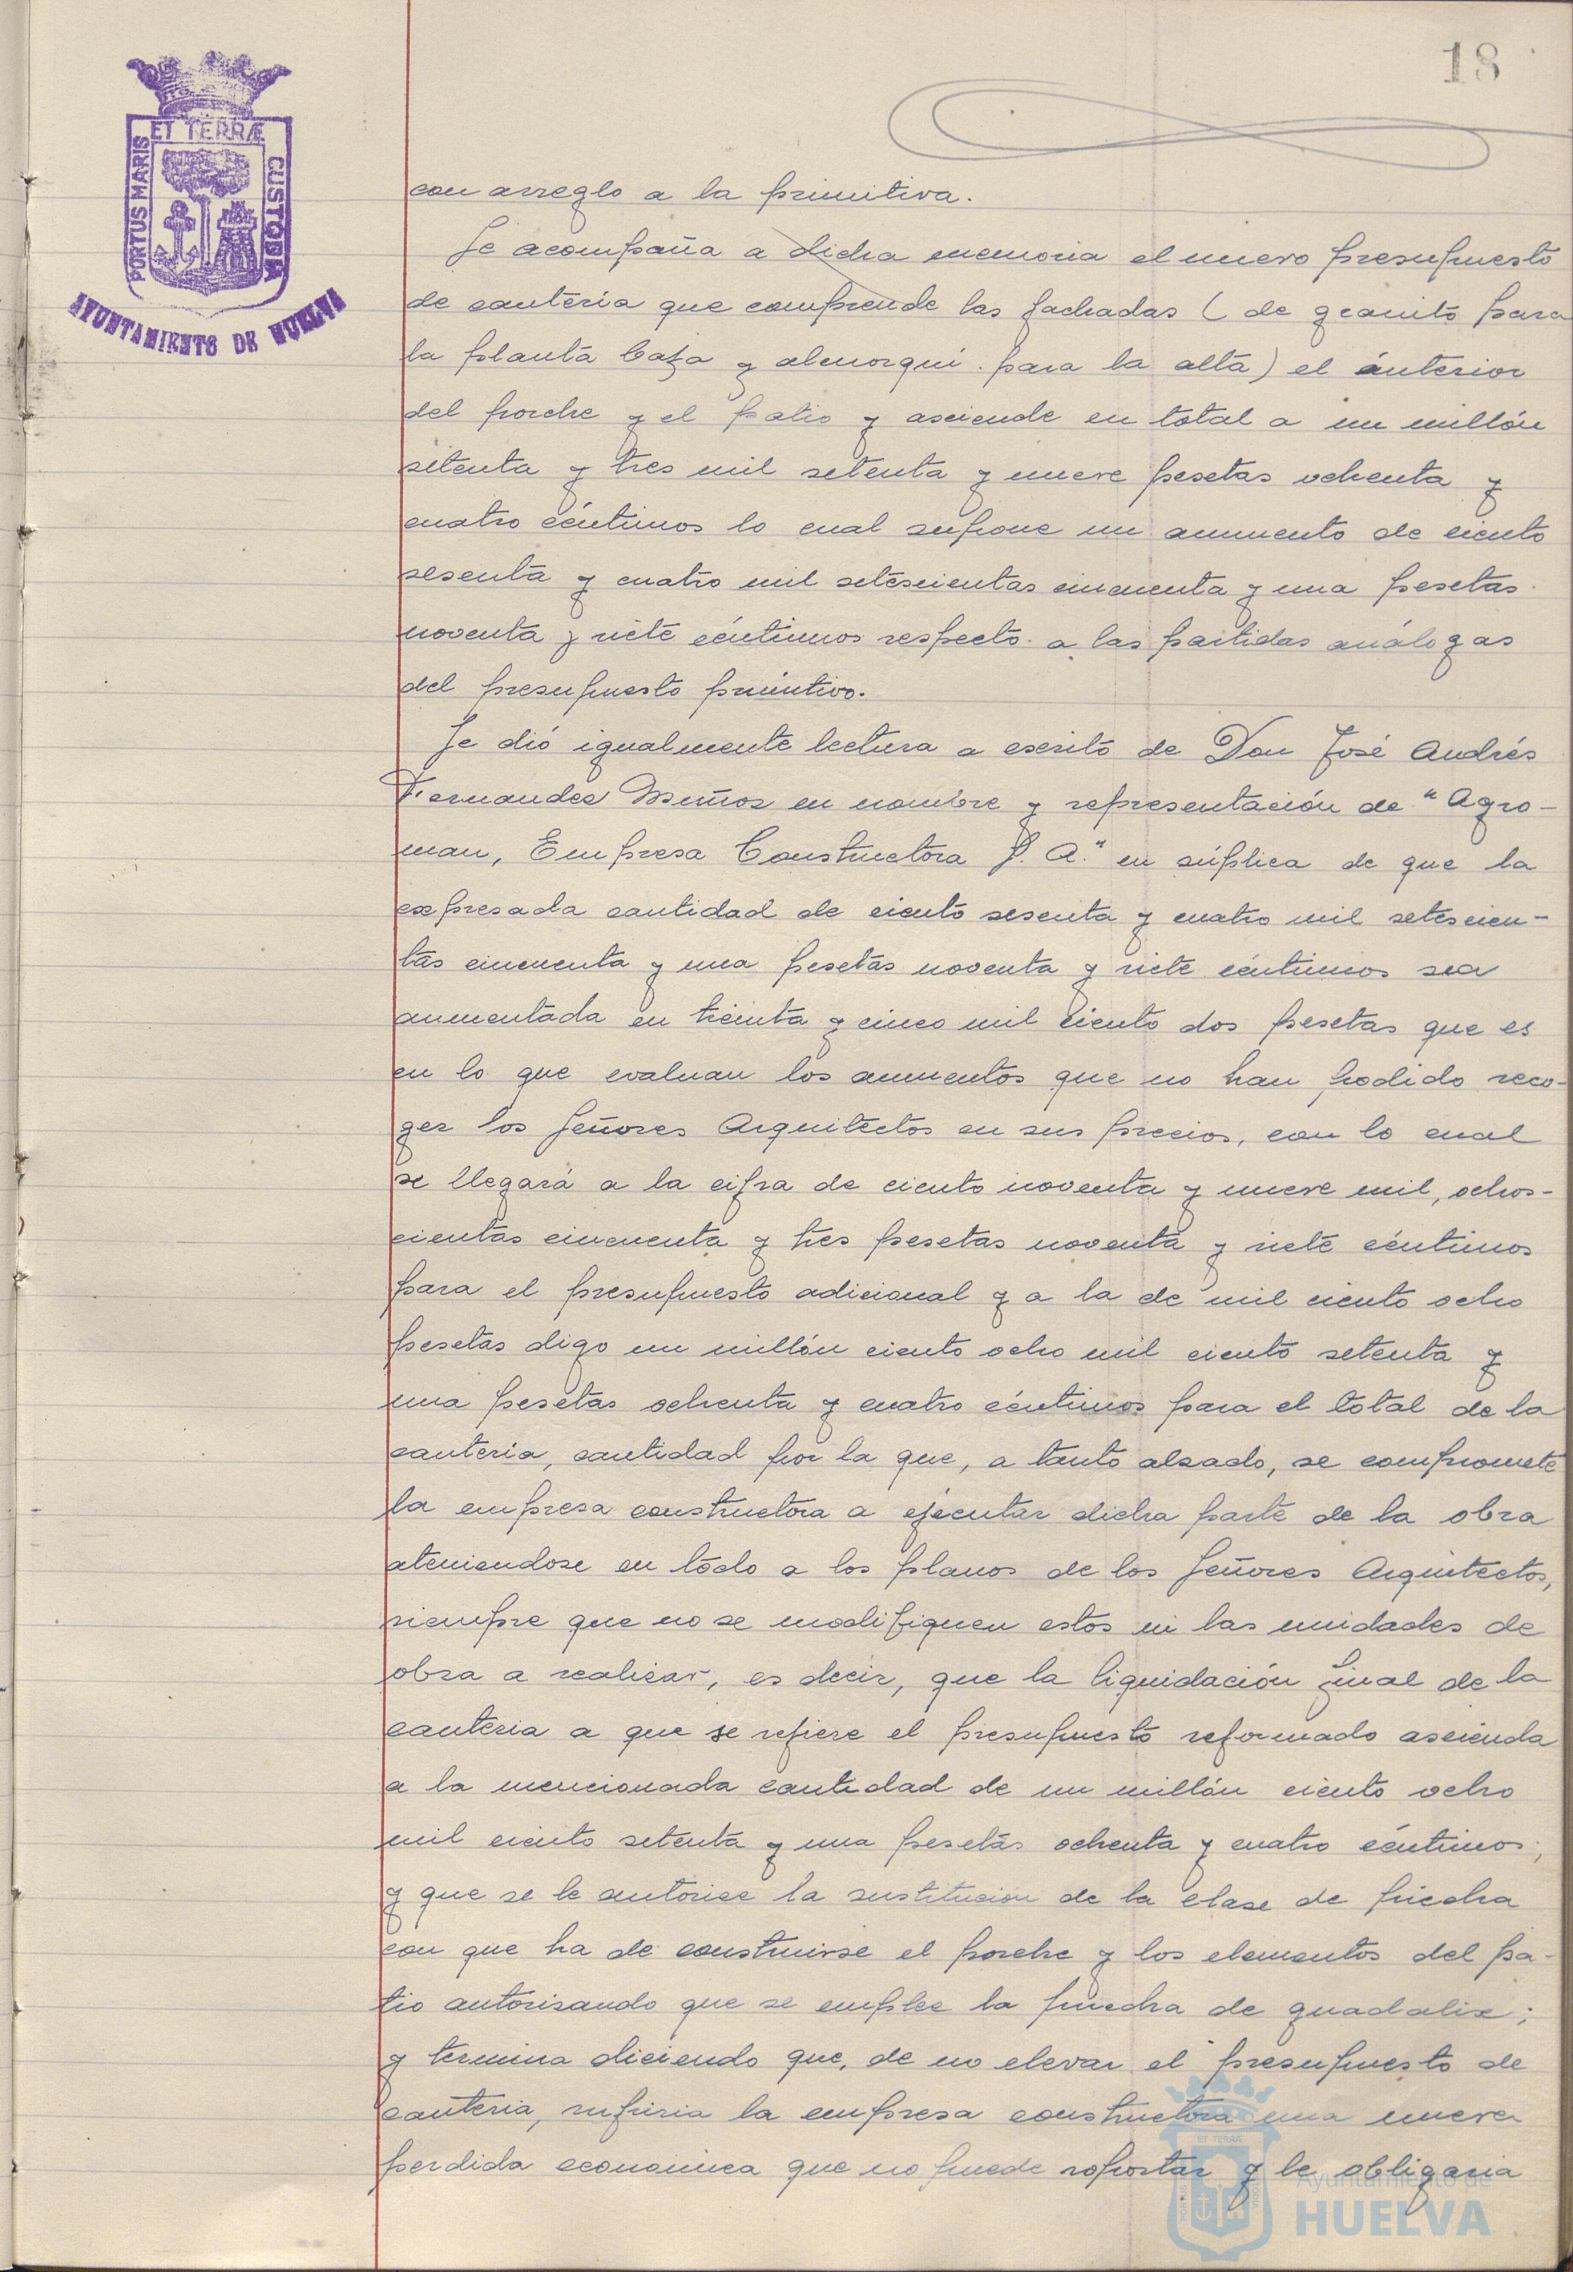 18
ET TERRÆ
PORTUS MARIS
CUSTODIA
AYUNTAMIENTO DE HUELVA
con arreglo a la primitiva.
Se acompaña a dicha memoria el nuevo presupuesto
de cantería que comprende las fachadas (de granito para
la planta baja y almorquí para la alta) el ánterior
del porche y el patio y asciende en total a un millón
setenta y tres mil setenta y nueve pesetas ochenta y
cuatro céntimos lo cual supone un aumento de ciento
sesenta y cuatro mil setescientas cincuenta y una pesetas
noventa y siete céntimos respecto a las partidas análogas
del presupuesto primitivo.
Se dió igualmente lectura a escrito de Don José Andrés
Fernandes Muñoz en nombre y representación de "Agro-
man, Empresa Constructora S. A." en súplica de que la
expresada cantidad de ciento sesenta y cuatro mil setescien-
tas cincuenta y una pesetas noventa y siete céntimos sea
aumentada en treinta y cinco mil ciento dos pesetas que es
en lo que evaluan los aumentos que no han podido reco-
ger los Señores Arquitectos en sus precios, con lo cual
se llegará a la cifra de ciento noventa y nueve mil, ochos-
cientas cincuenta y tres pesetas noventa y siete céntimos
para el presupuesto adicional y a la de mil ciento ocho
pesetas digo un millón ciento ocho mil ciento setenta y
una pesetas ochenta y cuatro céntimos para el total de la
cantería, cantidad por la que, a tanto alzado, se compromete
la empresa constructora a ejecutar dicha parte de la obra
ateniendose en todo a los planos de los Señores Arquitectos,
siempre que no se modifiquen estos ni las unidades de
obra a realizar, es decir, que la liquidación final de la
cantería a que se refiere el presupuesto reformado ascienda
a la mencionada cantidad de un millón ciento ocho
mil ciento setenta y una pesetas ochenta y cuatro céntimos;
y que se le autorice la sustitución de la clase de piedra
con que ha de construirse el porche y los elementos del pa-
tio autorisando que se emplee la piedra de guadalix;
y termina diciendo que, de no elevar el presupuesto de
cantería, sufriria la empresa constructora una nueva
perdida economica que no puede soportar y le obligaria
Ayuntamiento de
HUELVA